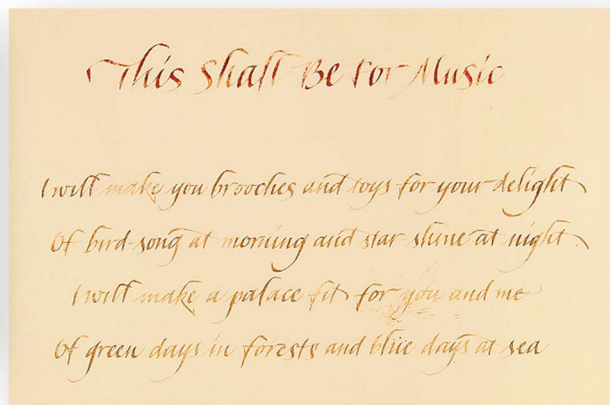 This Shall Be For Music
I will make you brooches and toys for your delight
Of bird-song at morning and star shine at night
I will make a palace fit for you and me
Of green days in forests and blue days at sea